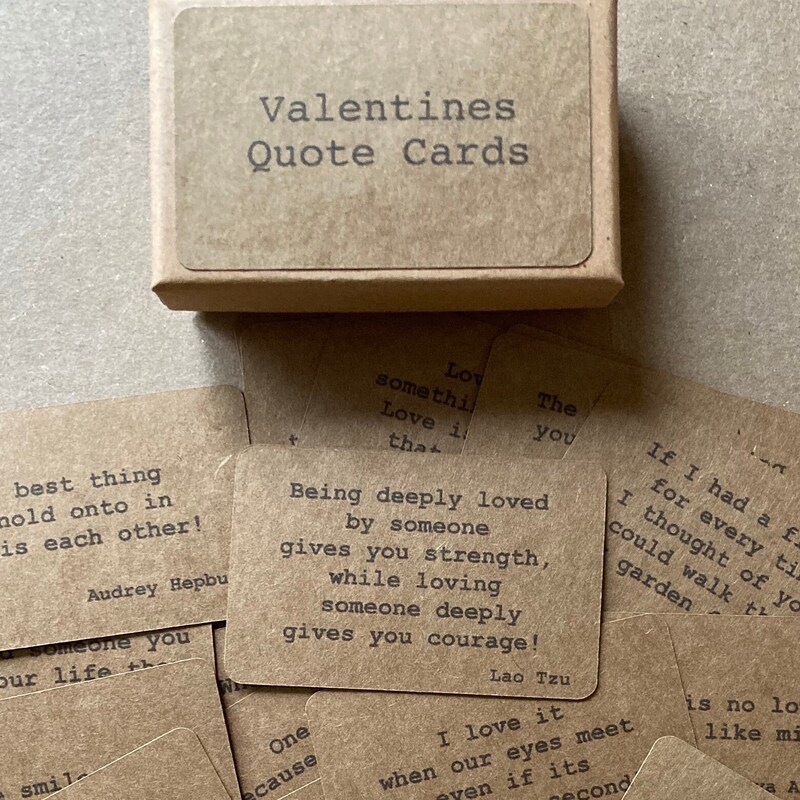 Valentines
Quote Cards
Lov
somethi
Love i
that
The
you
best thing
hold onto in
is each other!
Audrey Hepbu
Being deeply loved
by someone
gives you strength,
while loving
someone deeply
gives you courage!
Lao Tzu
If I had a f
for every ti
I thought of yo
could walk th
garden
someone you
our life tha
smile
One
ecause
I love it
when our eyes meet
even if its
second
is no lo
like mi